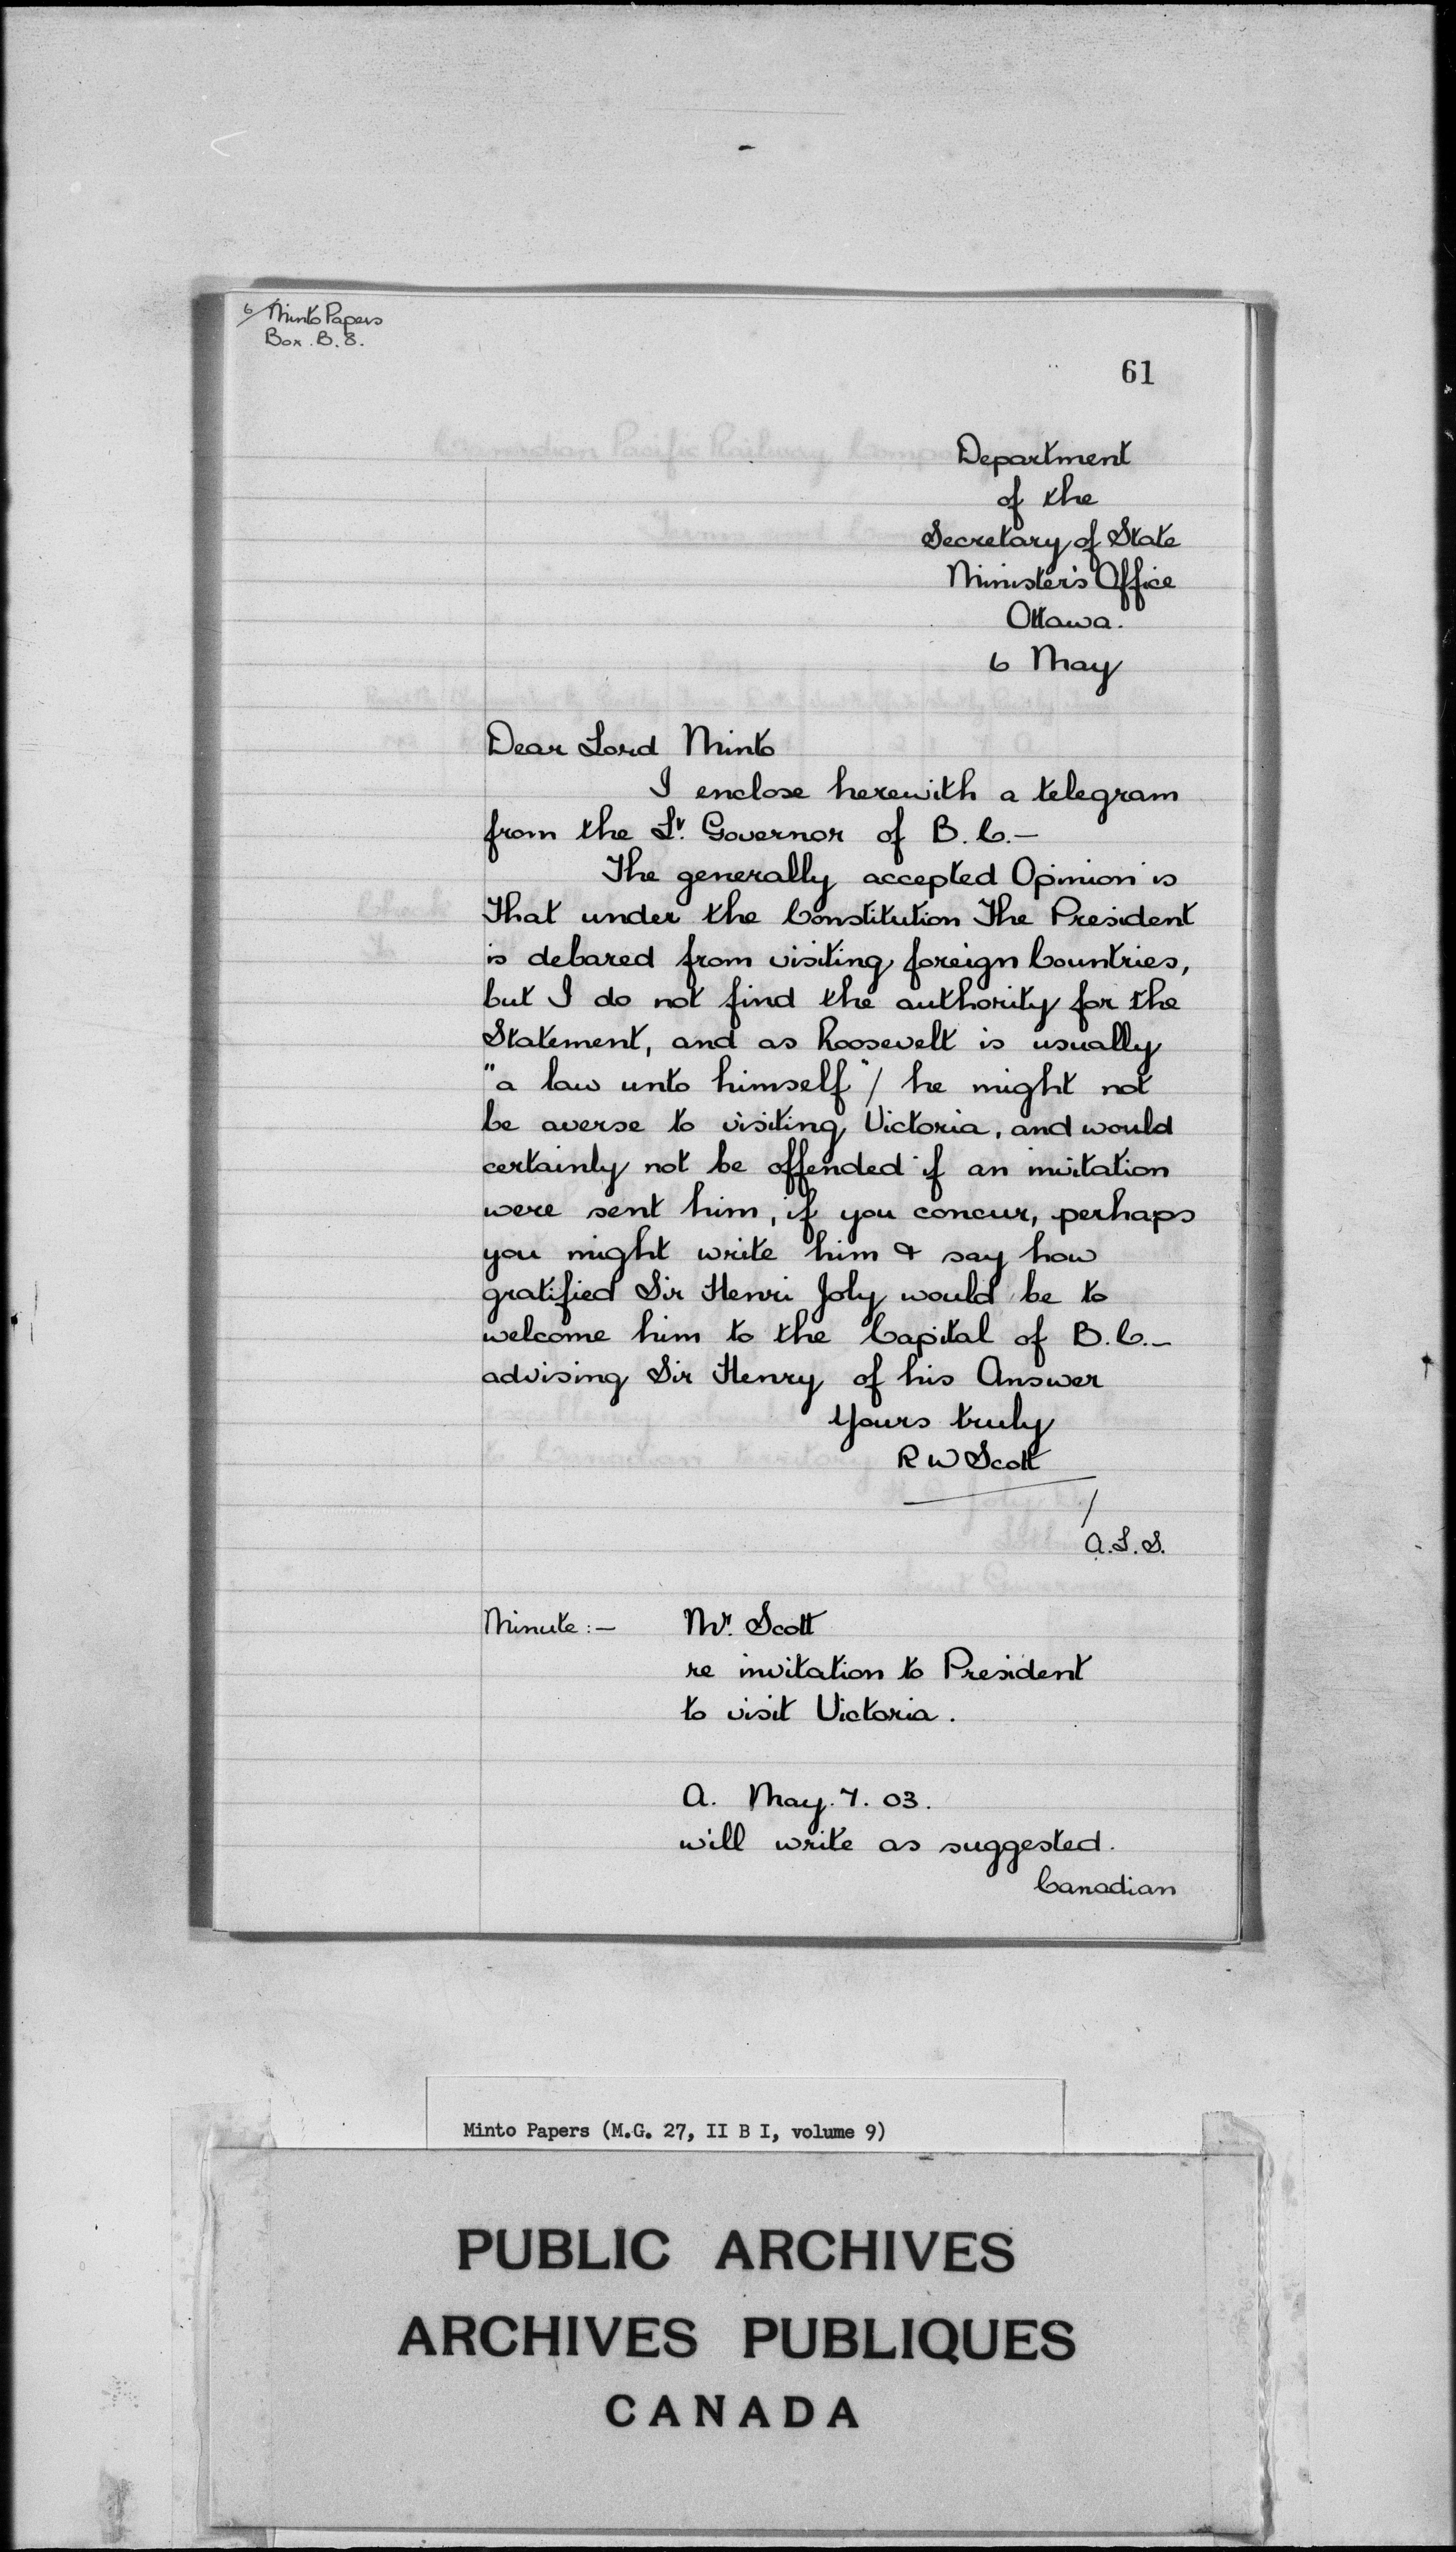 6/ Minto Papers
Box. B. 8.
61
Department
of the
Secretary of State
Minister's Office
Ottawa.
6 May
Dear Lord Minto
I enclose herewith a telegram
from the Lt. Governor of B.C.—
The generally accepted Opinion is
That under the Constitution The President
is debared from visiting foreign Countries,
but I do not find the authority for the
Statement, and as Roosevelt is usually
"a law unto himself"/ he might not
be averse to visiting Victoria, and would
certainly not be offended if an invitation
were sent him, if you concur, perhaps
you might write him & say how
gratified Sir Henri Joly would be to
welcome him to the Capital of B.C.—
advising Sir Henry of his Answer
Yours truly
R W Scott
/
A.L.S.
Minute:— Mr. Scott
re invitation to President
to visit Victoria.
A. May. 7. 03.
will write as suggested.
Canadian
Minto Papers (M.G. 27, II B I, volume 9)
PUBLIC ARCHIVES
ARCHIVES PUBLIQUES
CANADA